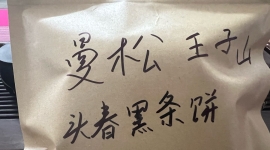 曼松 王子山
头春黑条饼